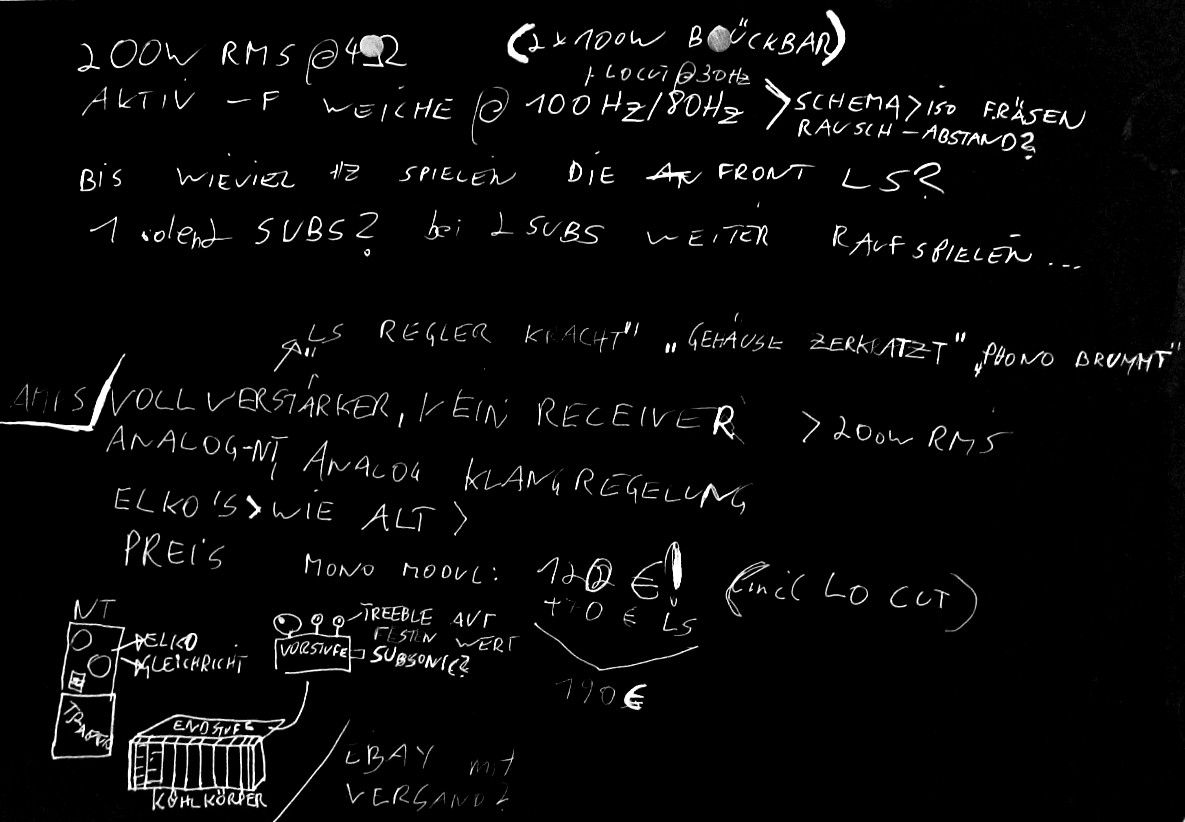 200W RMS @4Ω (2x100W BRÜCKBAR)
+ LOCUT @30Hz
AKTIV-F WEICHE @ 100Hz/80Hz > SCHEMA > ISO FRÄSEN
RAUSCH-ABSTAND?
BIS WIEVIEL HZ SPIELEN DIE FRONT LS?
1 SUBS? bei 2 SUBS WEITER RAUFSPIELEN...
"LS REGLER KRACHT" "GEHÄUSE ZERKRATZT" "PHONO BRUMMT"
AMIS/VOLLVERSTÄRKER, KEIN RECEIVER >200W RMS
ANALOG-NT, ANALOG KLANGREGELUNG
ELKO'S > WIE ALT >
PREIS
MONO MODUL: 120 €! (incl LO CUT)
+70 € LS
190€
NT
ELKO
GLEICHRICHT
TRAFO
TREEBLE AUF
FESTEN WERT
VORSTUFE
SUBSONIC?
ENDSTUFE
KÜHLKÖRPER
EBAY MIT
VERSAND?